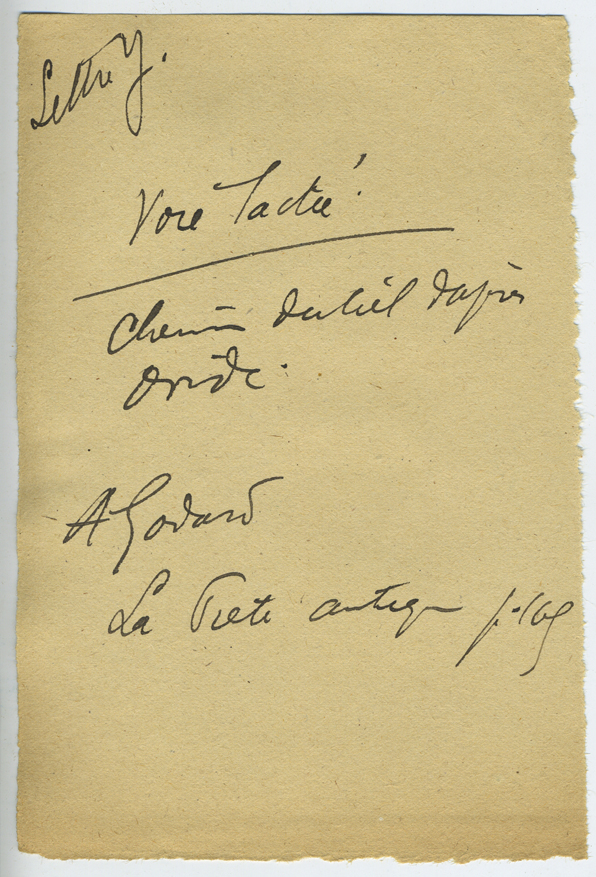 Lettre Y.
Voie Lactée.
Chemin du Ciel d'après
Ovide.
A Godard
La Piété antique p.